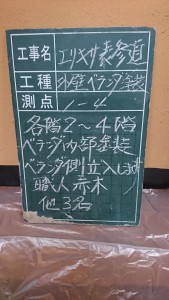 工事名 エリキサ表参道
工種 外壁ベランダ塗装
測点 1-4
各階2〜4階
ベランダ内部塗装
ベランダ側立入します
職人 赤木
他3名